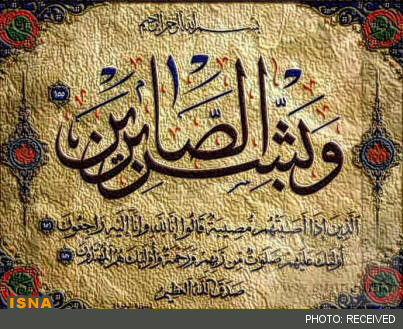 بسم الله الرحمن الرحیم
وَبَشِّرِ الصَّابِرِينَ ۱۵۵
الَّذِينَ إِذَا أَصَابَتْهُمْ مُصِيبَةٌ قَالُوا إِنَّا لِلَّهِ وَإِنَّا إِلَيْهِ رَاجِعُونَ
أُولَئِكَ عَلَيْهِمْ صَلَوَاتٌ مِنْ رَبِّهِمْ وَرَحْمَةٌ وَأُولَئِكَ هُمُ الْمُهْتَدُونَ
صدق الله العظيم
ISNA
PHOTO: RECEIVED